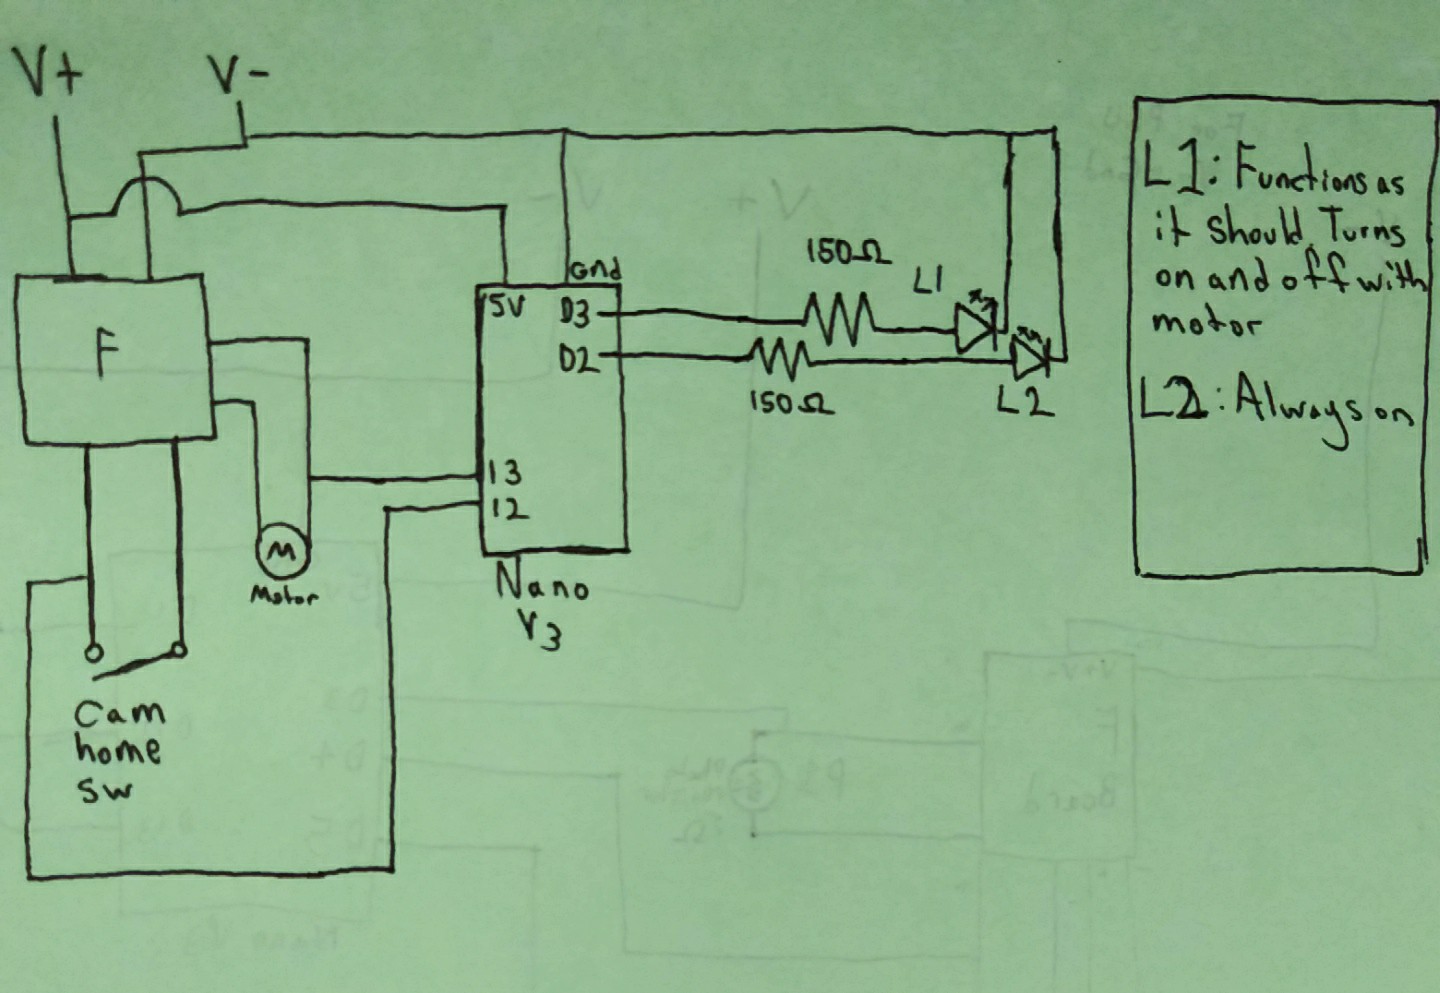 V+ V-
Gnd
5V D3
D2
13
12
Nano
V3
F
M
Motor
Cam
home
SW
150Ω
L1
150Ω
L2
L1: Functions as
it should. Turns
on and off with
motor
L2: Always on